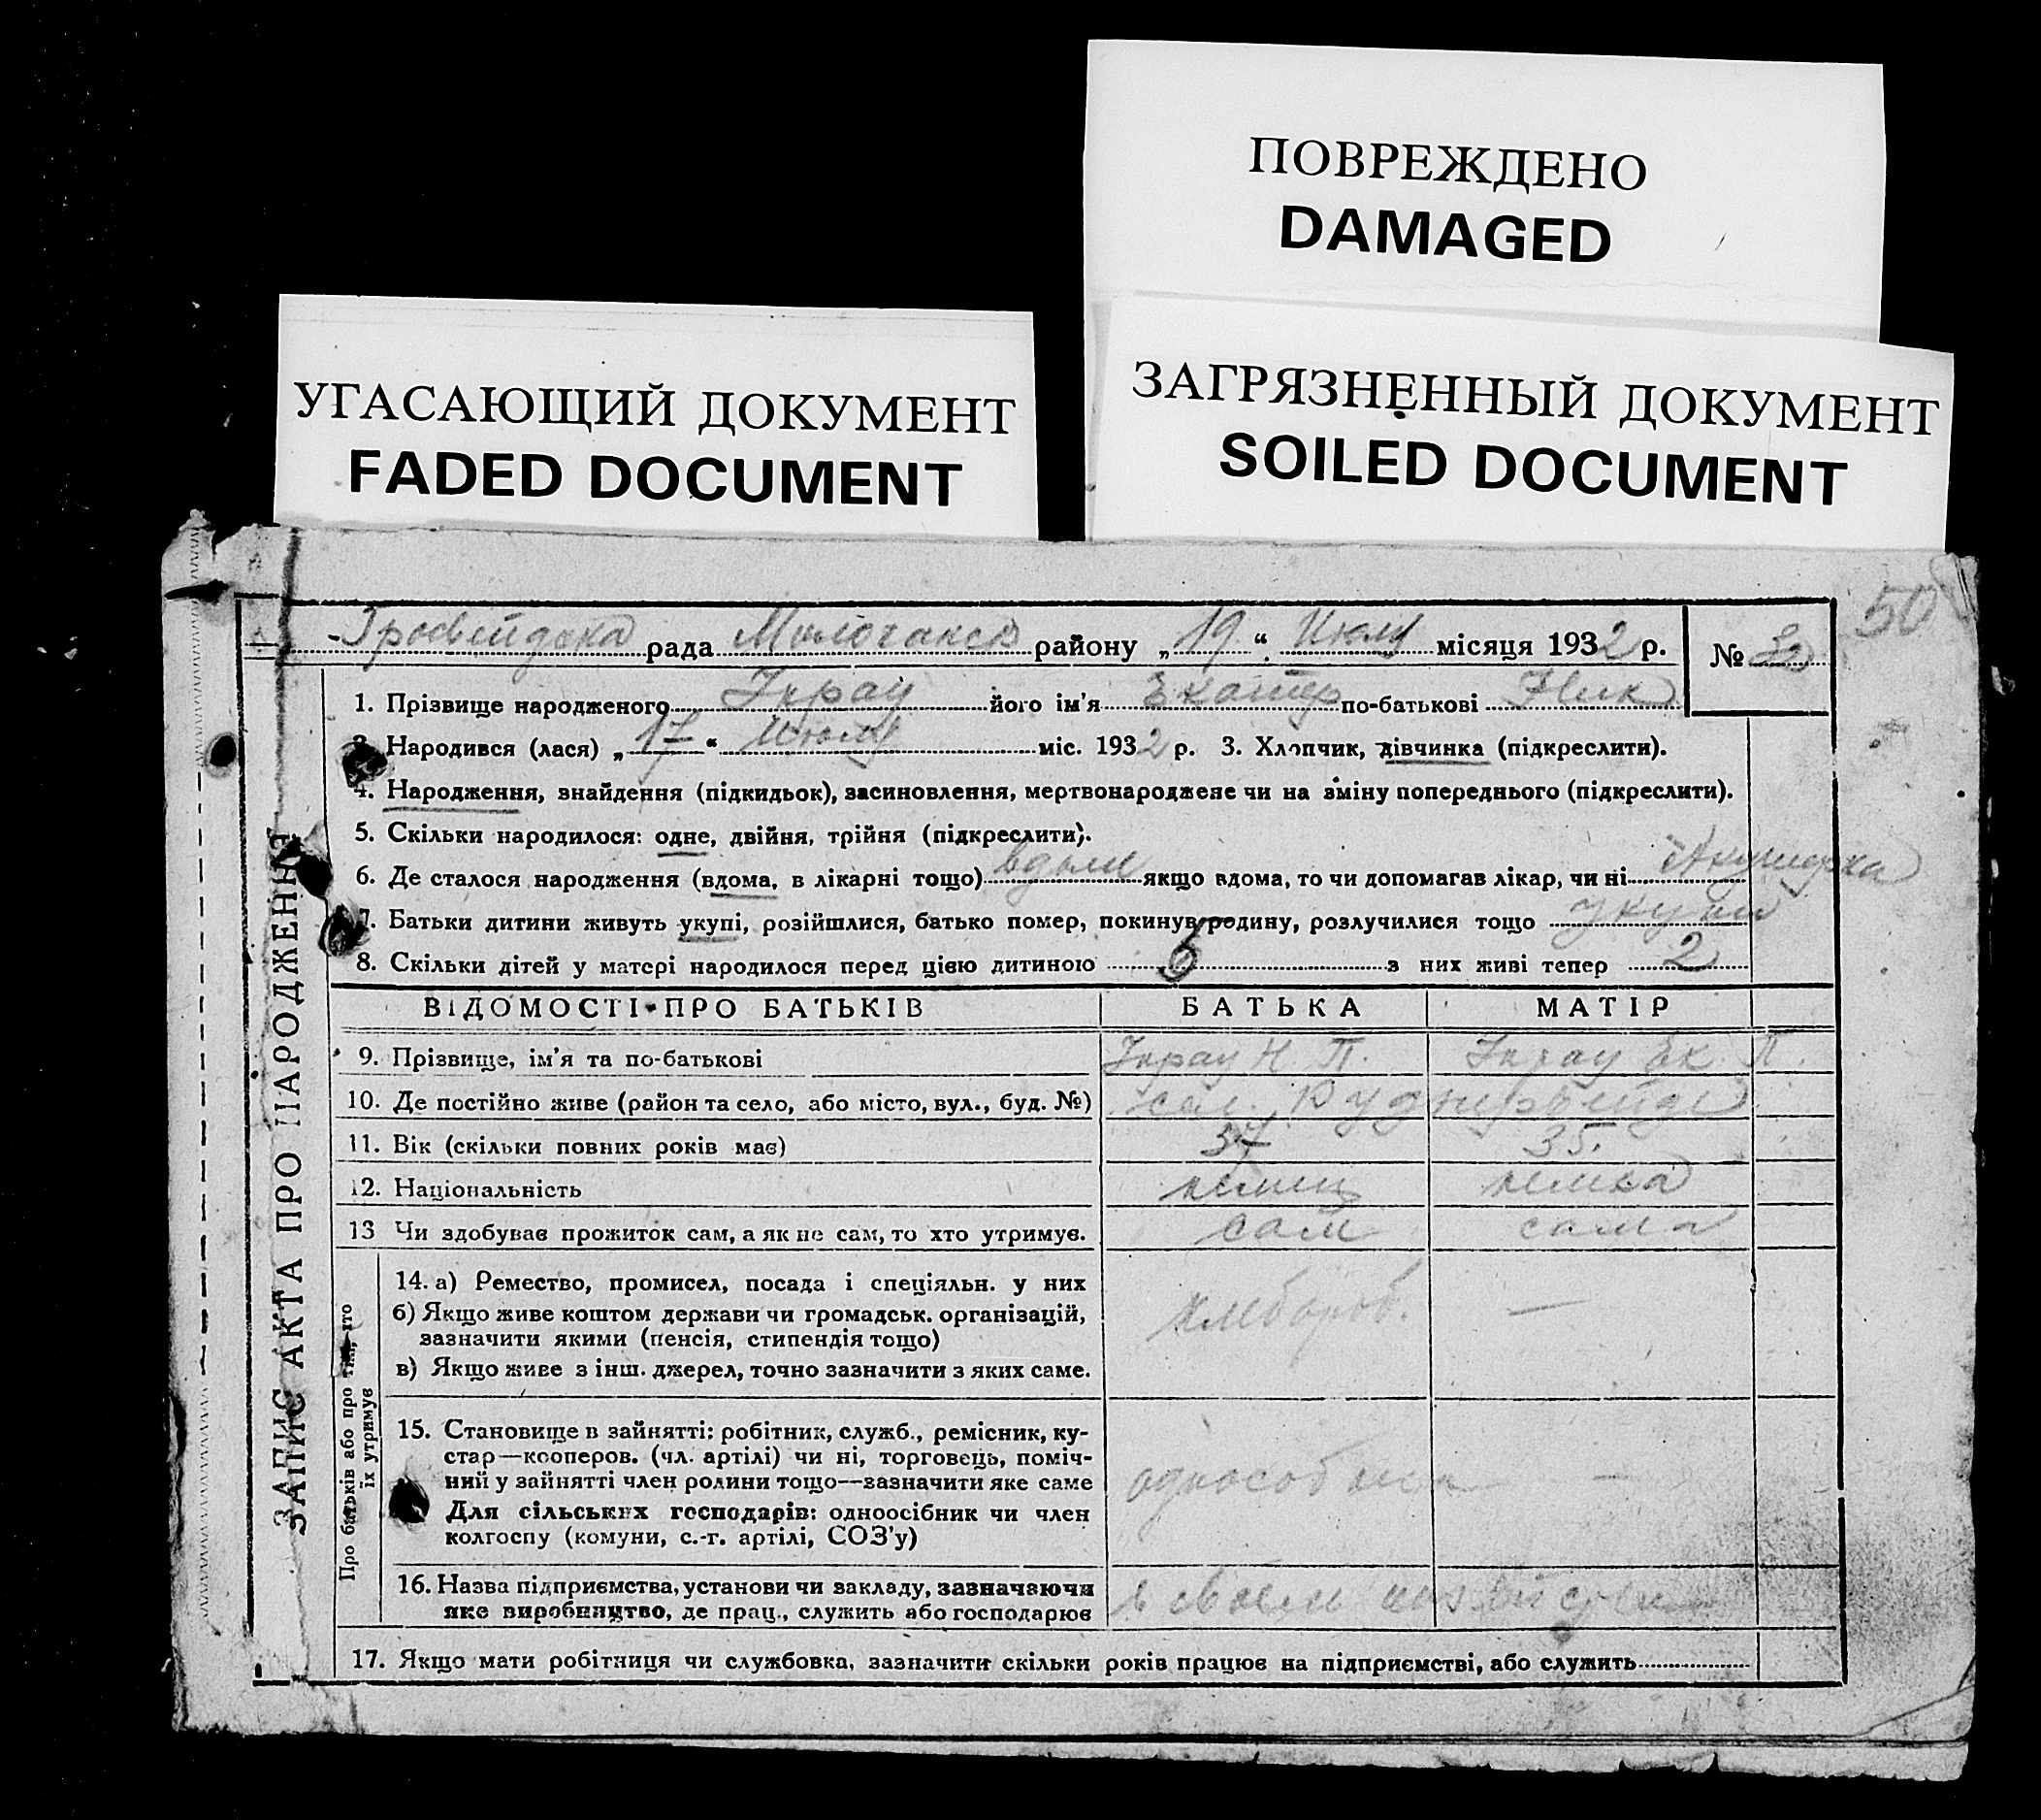 ПОВРЕЖДЕНО
DAMAGED
УГАСАЮЩИЙ ДОКУМЕНТ
FADED DOCUMENT
ЗАГРЯЗНЕННЫЙ ДОКУМЕНТ
SOILED DOCUMENT
50
рада Молочанск району „19“ Июля місяця 1932 р. №
1. Прізвище народженого його ім'я Екатер по-батькові Ник
Народився (лася) „17“ Июля міс. 1932 р. 3. Хлопчик, дівчинка (підкреслити).
4. Народження, знайдення (підкидьок), засиновлення, мертвонароджене чи на зміну попереднього (підкреслити).
5. Скільки народилося: одне, двійня, трійня (підкреслити).
6. Де сталося народження (вдома, в лікарні тощо) вдома якщо вдома, то чи допомагав лікар, чи ні Акушерка
7. Батьки дитини живуть укупі, розійшлися, батько помер, покинув родину, розлучилися тощо укупи
8. Скільки дітей у матері народилося перед цією дитиною з них живі тепер 2
ВІДОМОСТІ ПРО БАТЬКІВ БАТЬКА МАТІР
9. Прізвище, ім'я та по-батькові Н. П. Ек. П.
10. Де постійно живе (район та село, або місто, вул., буд. №)
11. Вік (скільки повних років має) 37 35.
12. Національність немец немка
13 Чи здобував прожиток сам, а як не сам, то хто утримує. сам сама
14. а) Ремество, промисел, посада і спеціяльн. у них
б) Якщо живе коштом держави чи громадськ. організацій,
зазначити якими (пенсія, стипендія тощо) хлебороб. —
в) Якщо живе з інш. джерел, точно зазначити з яких саме.
15. Становище в зайнятті: робітник, служб., ремісник, ку-
стар—кооперов. (чл. артілі) чи ні, торговець, поміч-
ний у зайнятті член родини тощо—зазначити яке саме —
Для сільських господарів: одноосібник чи член
колгоспу (комуни, с.-г. артілі, СОЗ'у)
16. Назва підприємства, установи чи закладу, зазначаючи
яке виробництво, де прац., служить або господарює в своем
17. Якщо мати робітниця чи службовка, зазначити скільки років працює на підприємстві, або служить
ЗАПИС АКТА ПРО НАРОДЖЕННЯ
Про батьків або про тих, хто
їх утримує